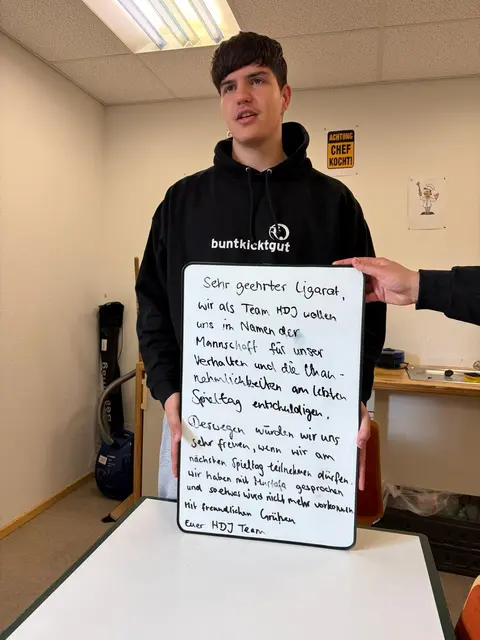 ACHTUNG
CHEF
KOCHT!
buntkicktgut
Sehr geehrter Ligarat,
wir als Team HDJ wollen
uns im Namen der
Mannschaft für unser
Verhalten und die Unan-
nehmlichkeiten am letzten
Spieltag entschuldigen.
Deswegen würden wir uns
sehr freuen, wenn wir am
nächsten Spieltag teilnehmen dürfen.
wir haben mit Mustafa gesprochen
und so etwas wird nicht mehr vorkommen
Mit freundlichen Grüßen
Euer HDJ Team